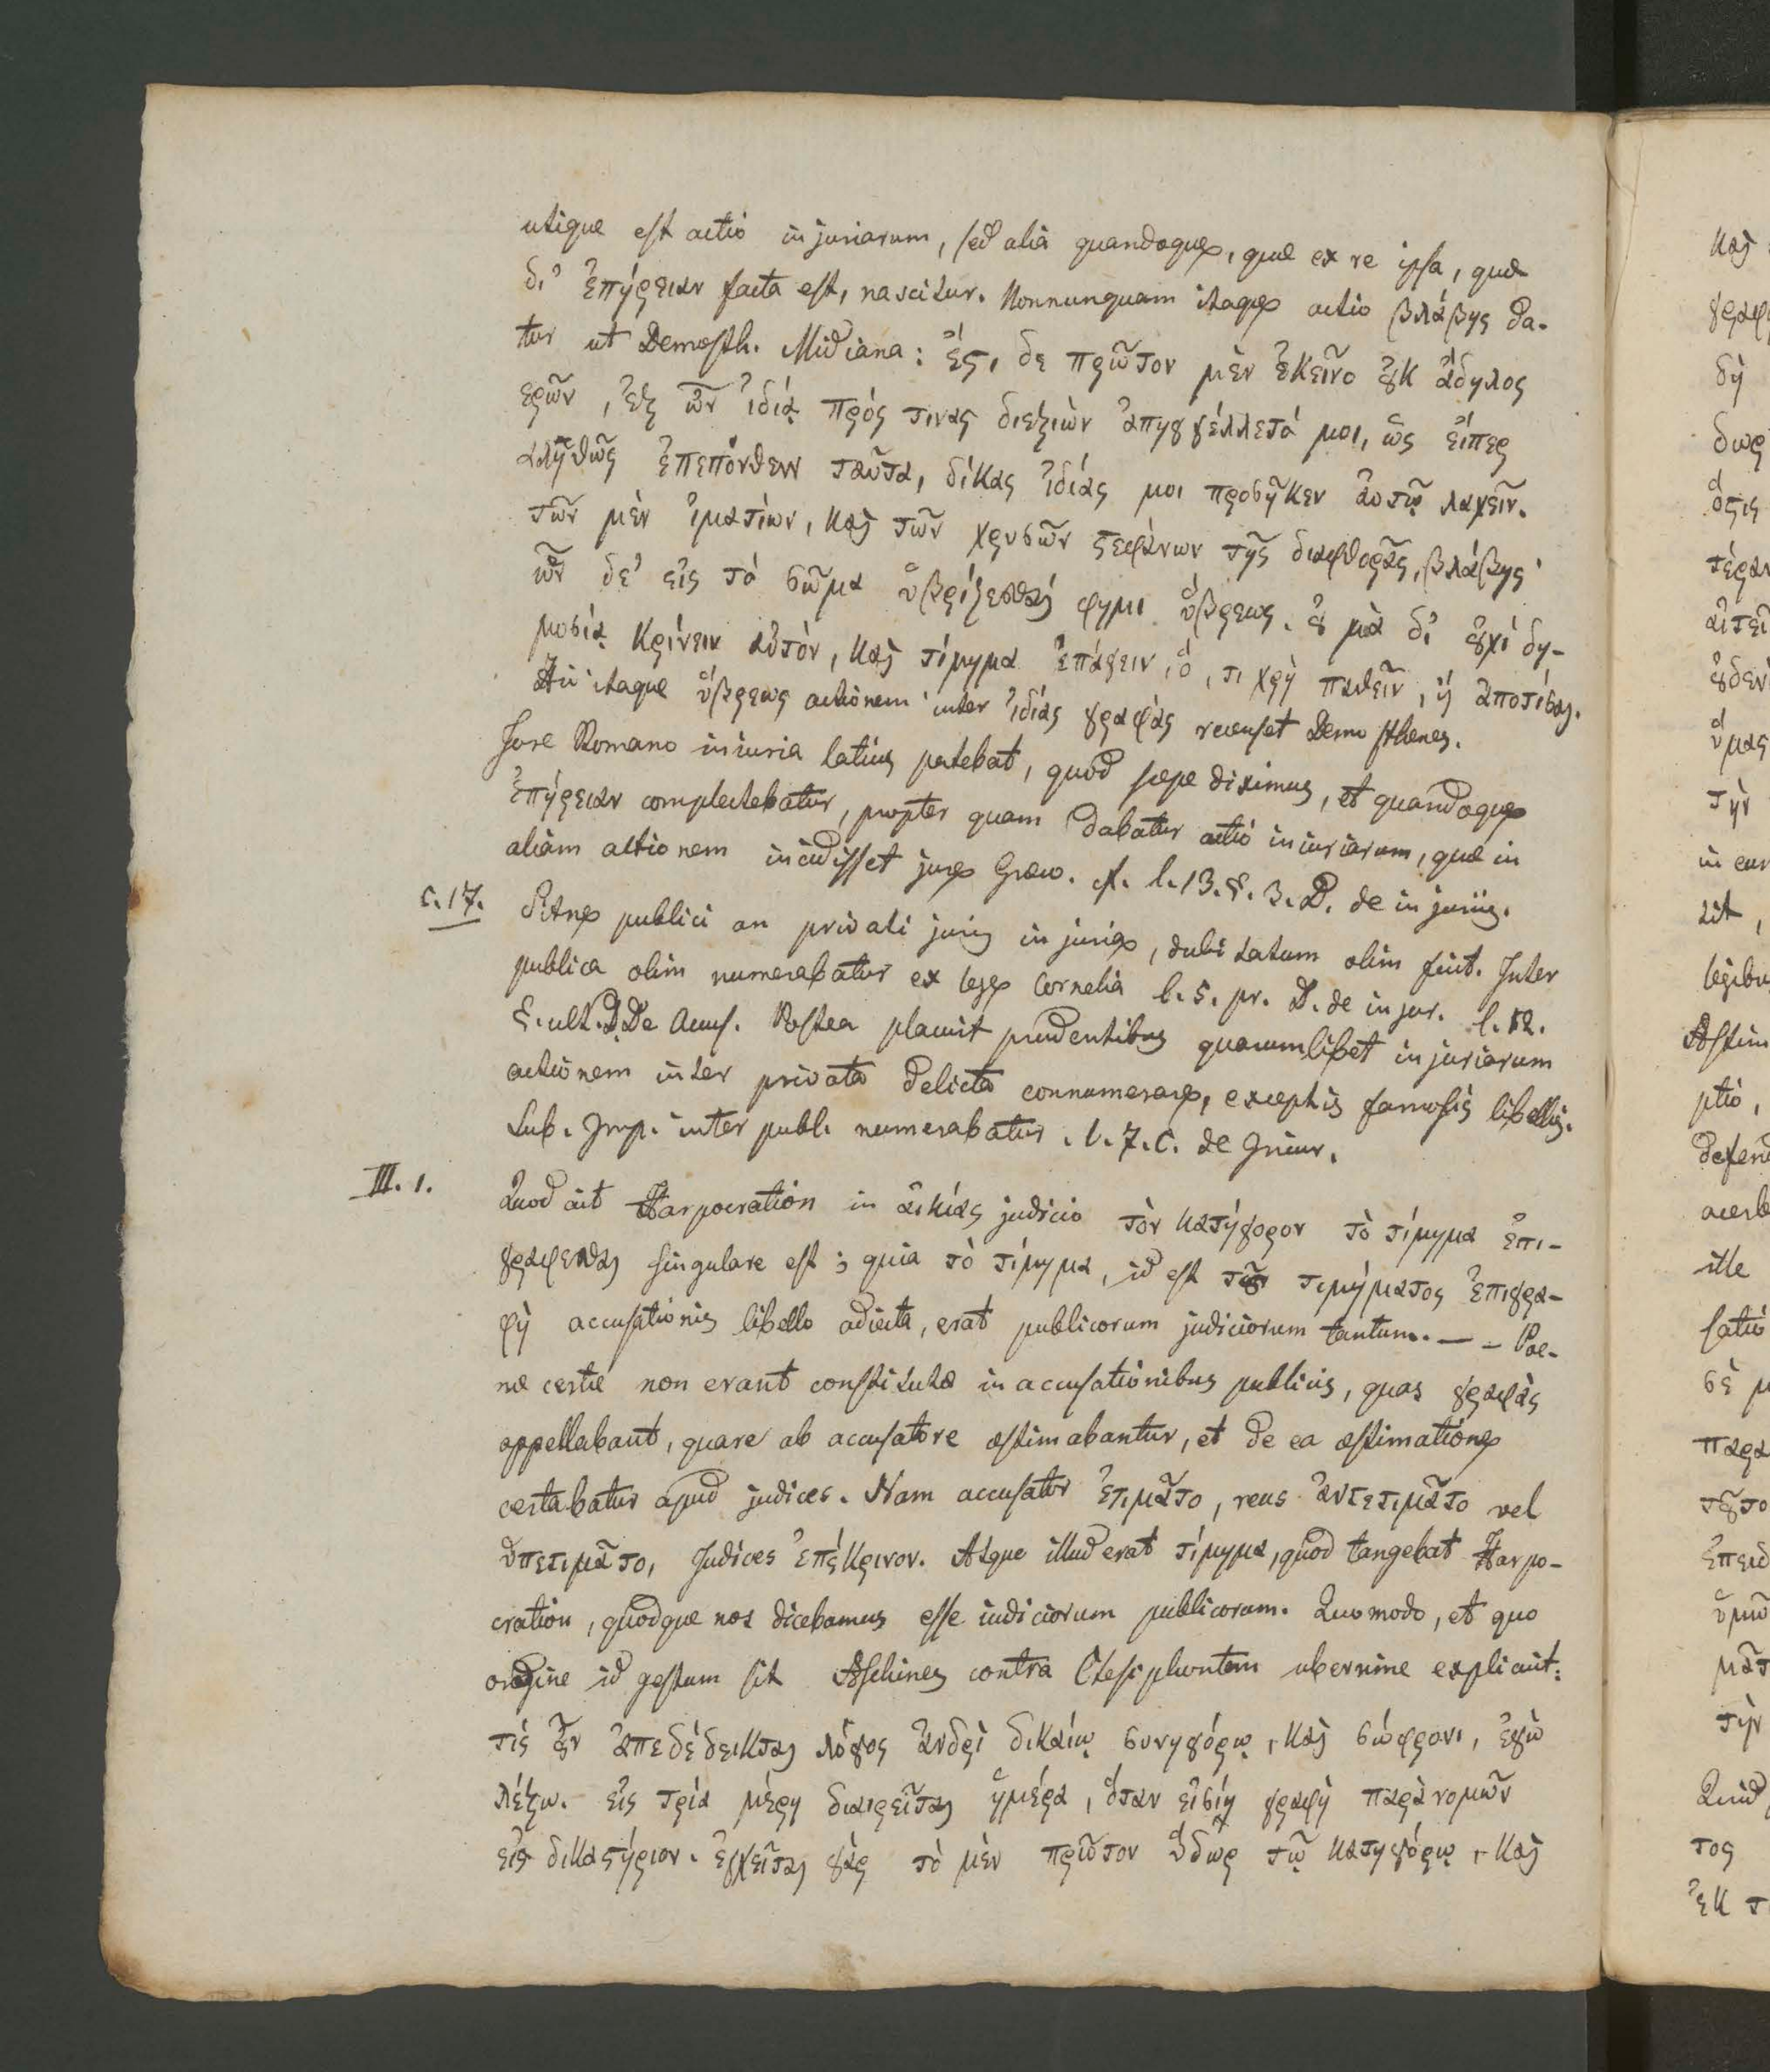 utique est actio injuriarum, sed alia quandoque, quæ ex re ipsa, quæ
δι᾽ ἐπήρειαν facta est, nascitur. Nonnunquam itaque actio βλάβης da-
tur ut Demosth. Midiana: ἔϛι δε πρῶτον μὲν ἐκεῖνο ȣ̓κ ἄδηλος
ερῶν, ἐξ ὧν ἰδίᾳ πρός τινας διεξιὼν ἀπηγγέλλετό μοι, ὡς εἴπερ
αληθῶς ἐπεπόνθειν ταῦτα, δίκας ἰδίας μοι προσῆκεν ἀυτῷ λαχεῖν.
τῶν μὲν ἱματίων, καὶ τῶν χρυσῶν ϛεφάνων τῆς διαφθορᾶς, βλάβης·
ὧν δε᾽ εἰς τό σῶμα ὑβρίζεσθαί φημι ὕβρεως. ȣ̓ μὰ δι᾽ ȣ̓χί δη-
μοσίᾳ κρίνειν αὐτόν, καὶ τίμημα ἐπάγειν, ὅ, τι χρὴ παθεῖν, ἢ ἀποτίσαι.
Hic itaque ὕβρεως actionem inter ἰδίας γραφὰς recenset Demosthenes.
Jure Romano iniuria latius patebat, quod sæpe diximus, et quandoque
ἐπήρειαν complectebatur, propter quam dabatur actio iniuriarum, quæ in
aliam actionem incidisset jure Græco. cf. l. 13. §. 3. D. de injuriis.
c. 17. Sitne publici an privati juris injuria, dubitatum olim fuit. Inter
publica olim numerabatur ex lege Cornelia l. 5. pr. D. de injur. l. 12.
§. ult. D. De Accus. Postea placuit prudentibus quarumlibet injuriarum
actionem inter privata delicta connumerare, exceptis famosis libellis.
Sub. Imp. inter publ. numerabatur. l. 7. C. de Iniur.
III. 1. Quod ait Harpocration in αἰκίας judicio τὸν κατήγορον τὸ τίμημα ἐπι-
γράφεσθαι singulare est; quia τὸ τίμημα, id est τȣ͂ τιμήματος ἐπιγρα-
φὴ accusationis libello adiecta, erat publicorum judiciorum tantum. — – Poe-
næ certæ non erant constitutæ in accusationibus publicis, quas γραφὰς
appellabant, quare ab accusatore æstimabantur, et de ea æstimatione
certabatur apud judices. Nam accusator ἐτιμᾶτο, reus ἀντετιμᾶτο vel
ὑπετιμᾶτο, Judices ἐπέκρινον. Atque illud erat τίμημα, quod tangebat Harpo-
cration, quodque nos dicebamus esse iudiciorum publicorum. Quomodo, et quo
ordine id gestum sit Æschines contra Ctesiphontem uberrime explicuit:
τίς ȣ̓͂ν ἀπεδέδεικται λόγος ἀνδρὶ δικαίῳ συνηγόρῳ, καὶ σώφρονι, ἐγὼ
λέξω. εἰς τρία μέρη διαιρεῖται ἡμέρα, ὅταν εἰσίῃ γραφὴ παρὰνομῶν
εἰς δικαϛήριον. ἐγχεῖται γὰρ τὸ μὲν πρῶτον ὕδωρ τῷ κατηγόρῳ, καὶ